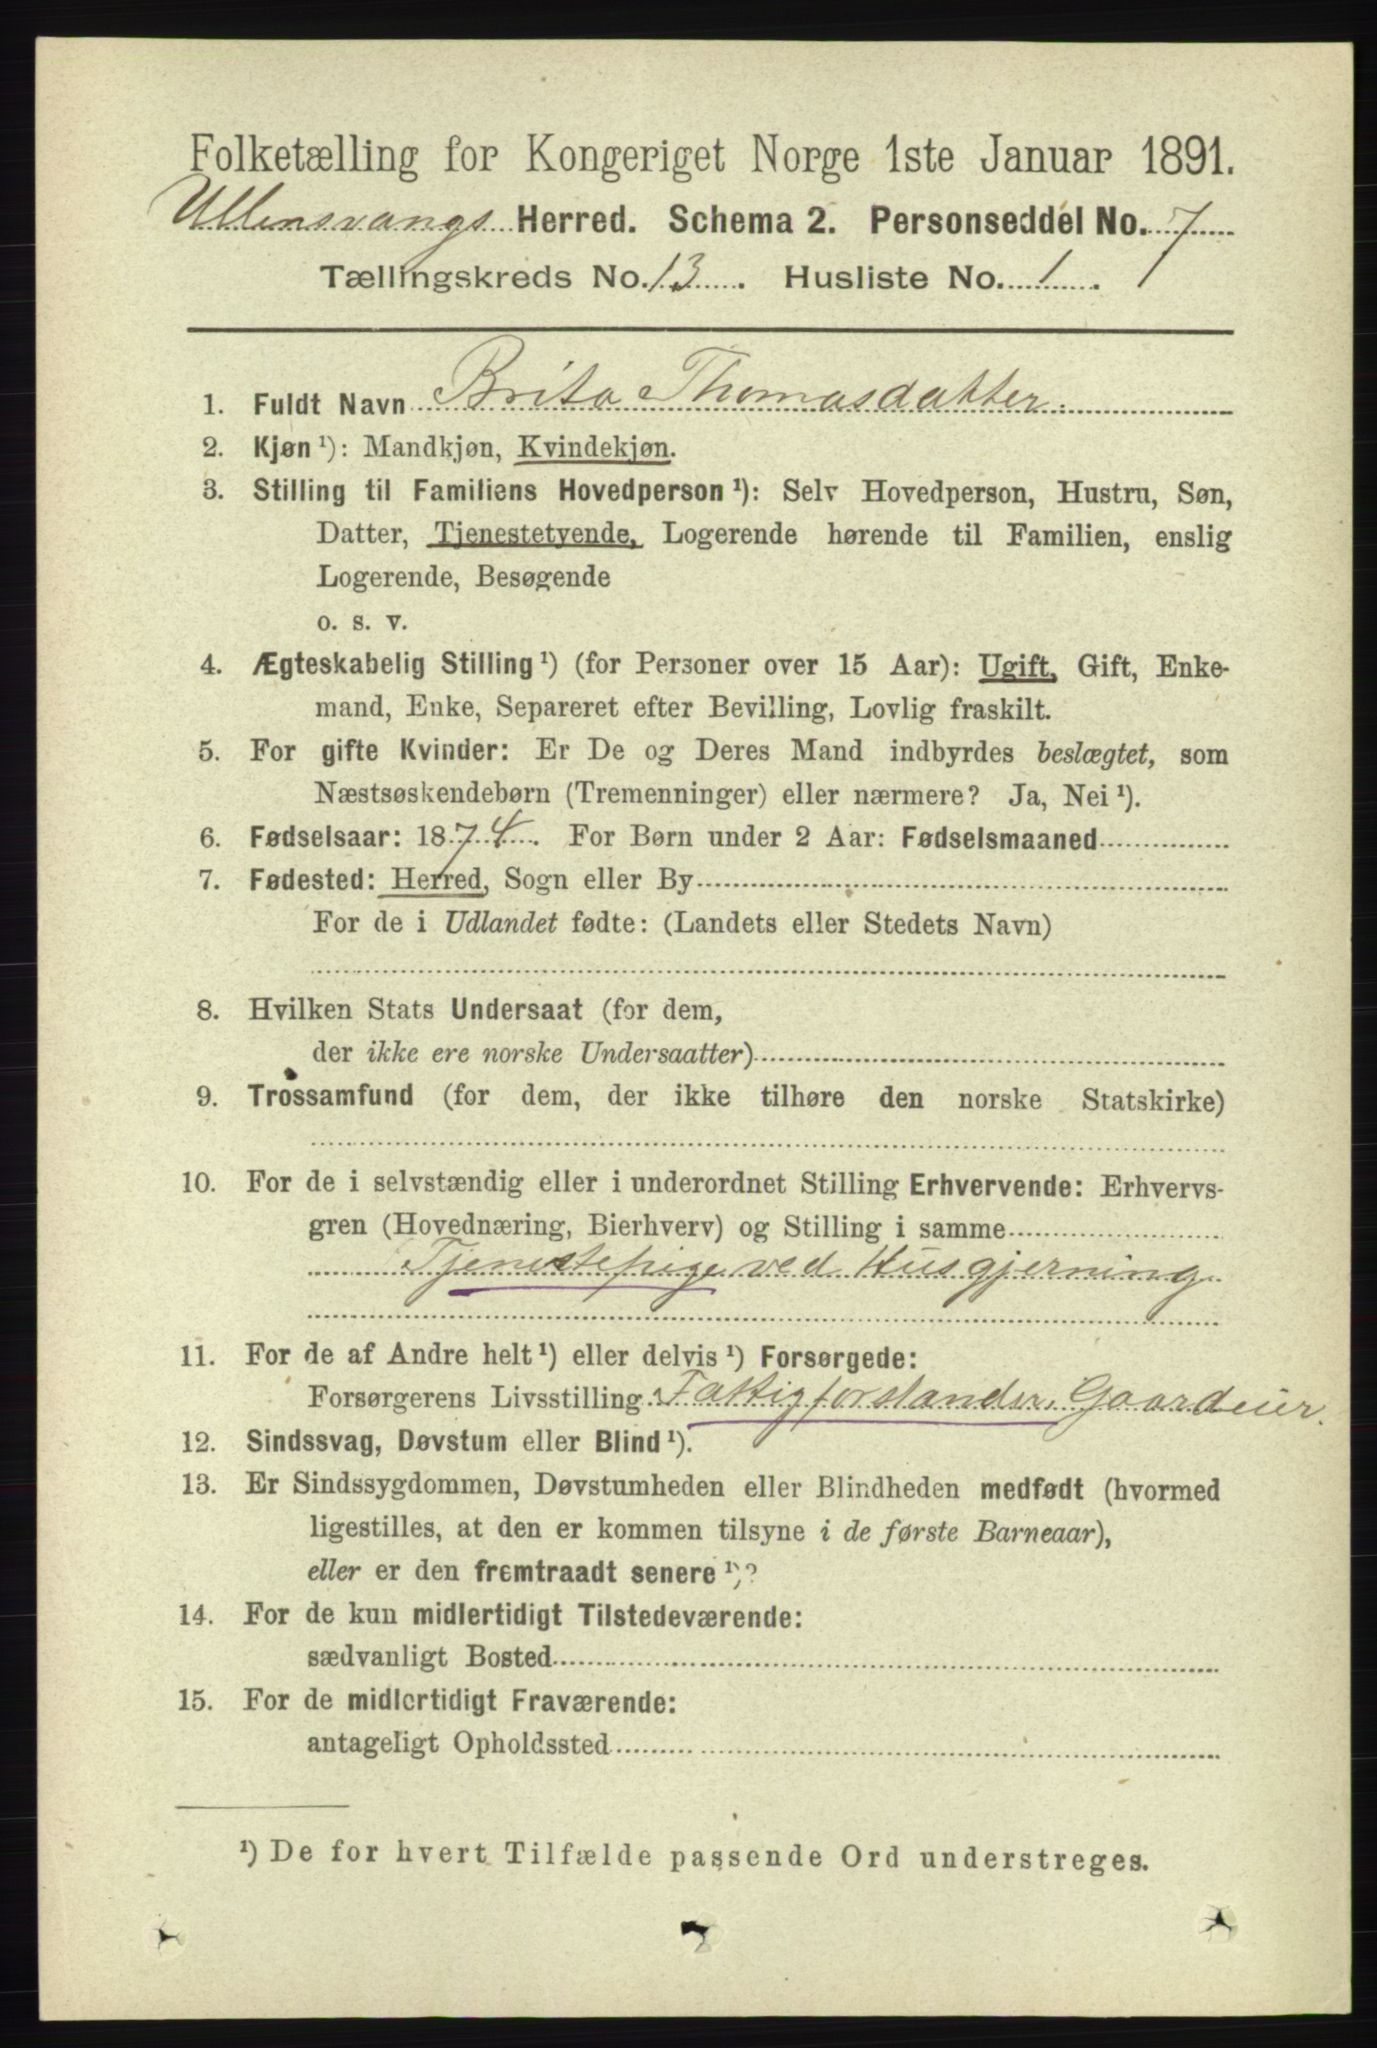 Folketælling for Kongeriget Norge 1ste Januar 1891.
Ullensvangs Herred. Schema 2. Personseddel No. 7
Tællingskreds No. 13. Husliste No. 1.
1. Fuldt Navn Brita Thomasdatter.
2. Kjøn ¹): Mandkjøn, Kvindekjøn.
3. Stilling til Familiens Hovedperson ¹): Selv Hovedperson, Hustru, Søn,
Datter, Tjenestetyende, Logerende hørende til Familien, enslig
Logerende, Besøgende
o. s. v.
4. Ægteskabelig Stilling ¹) (for Personer over 15 Aar): Ugift, Gift, Enke-
mand, Enke, Separeret efter Bevilling, Lovlig fraskilt.
5. For gifte Kvinder: Er De og Deres Mand indbyrdes beslægtet, som
Næstsøskendebørn (Tremenninger) eller nærmere? Ja, Nei ¹).
6. Fødselsaar: 1874. For Børn under 2 Aar: Fødselsmaaned
7. Fødested: Herred, Sogn eller By
For de i Udlandet fødte: (Landets eller Stedets Navn)
8. Hvilken Stats Undersaat (for dem,
der ikke ere norske Undersaatter)
9. Trossamfund (for dem, der ikke tilhøre den norske Statskirke)
10. For de i selvstændig eller i underordnet Stilling Erhvervende: Erhvervs-
gren (Hovednæring, Bierhverv) og Stilling i samme
Tjenestepige ved Husgjerning
11. For de af Andre helt ¹) eller delvis ¹) Forsørgede:
Forsørgerens Livsstilling Fattigforstander, Gaardeier.
12. Sindssvag, Døvstum eller Blind ¹).
13. Er Sindssygdommen, Døvstumheden eller Blindheden medfødt (hvormed
ligestilles, at den er kommen tilsyne i de første Barneaar),
eller er den fremtraadt senere ¹)?
14. For de kun midlertidigt Tilstedeværende:
sædvanligt Bosted
15. For de midlertidigt Fraværende:
antageligt Opholdssted
¹) De for hvert Tilfælde passende Ord understreges.